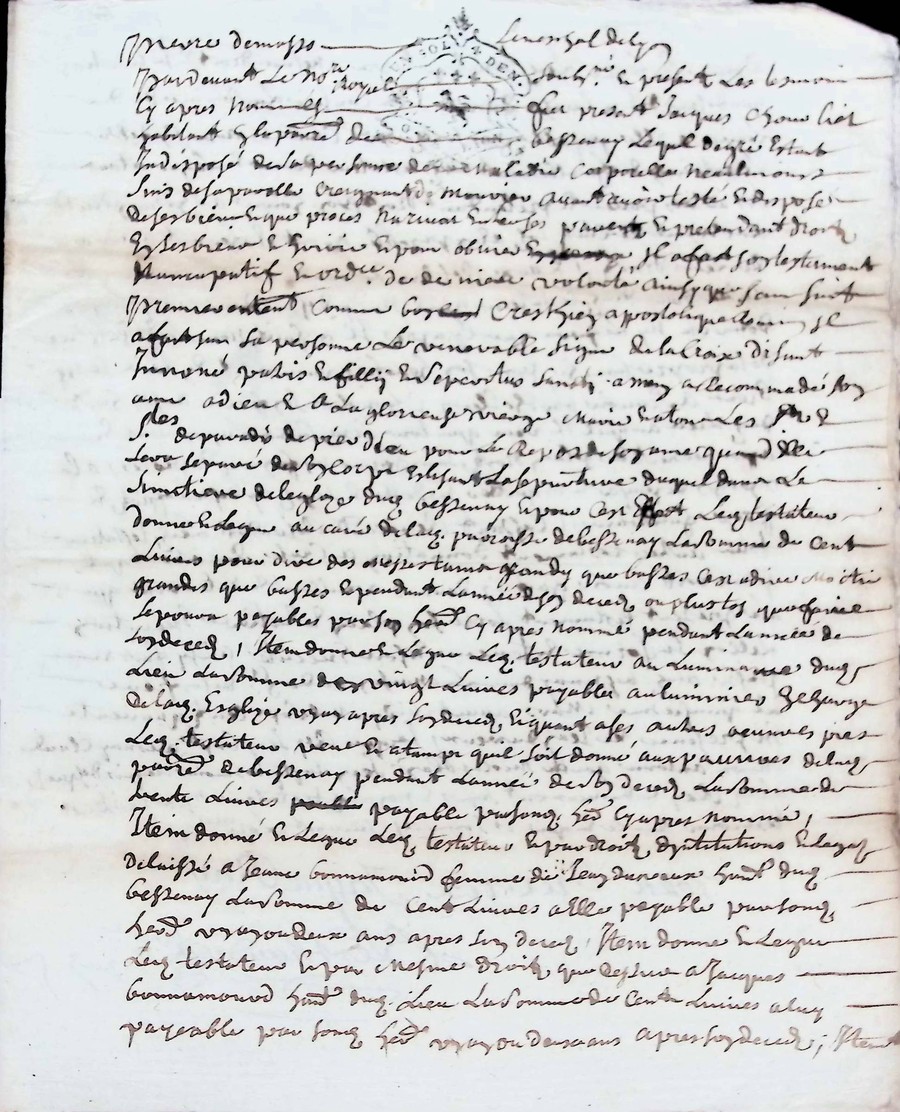 Pierre demasso Seneschal de Lyon
Pardevant Le No.re Royal soub.né En presence Les tesmoins
Cy apres Nommés fut present Jacques Chouulict
habitant En la paroisse de bessenay Lequel de gré Estant
Indisposé de sa personne de maladie Corporelle Neaulmoins
Sains de sa parolle Craignant de Mourir avant avoir testé En disposé
de ses biens En que proces Nariva Entre ses parents En pretendant droit
En ses biens En hoirie En pour obvier Il a fait son testament
Nuncupatif En ordce. de derniere volonté ainsy que sans suit
Premierement Comme bon Crestien apostolique Il
a fait sur sa personne Le venerable Signe de la Croix disant
In nomé patris En fillij En Speeritus Sancti amen a Recommandé son
ame a dieu En A La glorieuse vierge Marie En atous Les Sts &
Stes de paradis de prier Dieu pour Le Repos de son ame quand Elle
sera separée de son corps Elisant La sepulture duquel dans Le
Simetiere de leglize dudq. bessenay En pour cest effect Lecq. testateur
donne En Legue au curé de lacq. paroisse de bessenay La somme de Cent
Livres pour dire des messes tant grandes que basses Cest a dire Moitié
grandes que basses En pendant L'année de son deced ou plustos que faire
se poura payables par son hered Cy apres Nommé pendant L'année de
son deced, Item donne En Legue Lecq. testateur au Luminaire dudq.
Lieu La somme de vingt Livres payable au luminier En charge
de lacq. Esglize un an apres son deced, En quant a ses autres oeuvres pies
Lecq. testateur veut En atempe quil soit donné aux pauvres de lacq.
paroisse de bessenay pendant L'année de son deced La somme de
trente Livres payable par sonq. hered Cy apres nommé,
Item donné En Legue Lecq. testateur En par droit dinstitutions En Legat
delaissé a Jeane bonnamourd femme de Jean hant dudq.
bessenay La somme de Cent Livres a Elle payable par sonq.
hered un an ou deux ans apres son deced, Item donne En Legue
Lecq. testateur En par mesme droit que dessus a Jacques
bonnamourd hant dudq. Lieu La somme de Cent Livres a luy
payeable par sonq. hered un an ou deux ans apres son deced; Item